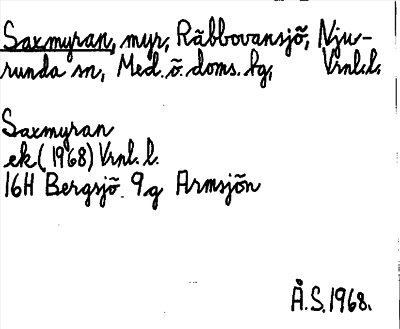 Saxmyran, myr, Räbbovansjö, Nju-
runda sn, Med. ö. doms. hg, Vrnl.l.
Saxmyran
ek (1968) Vrnl. l.
16H Bergsjö 9g Armsjön
Å.S. 1968.